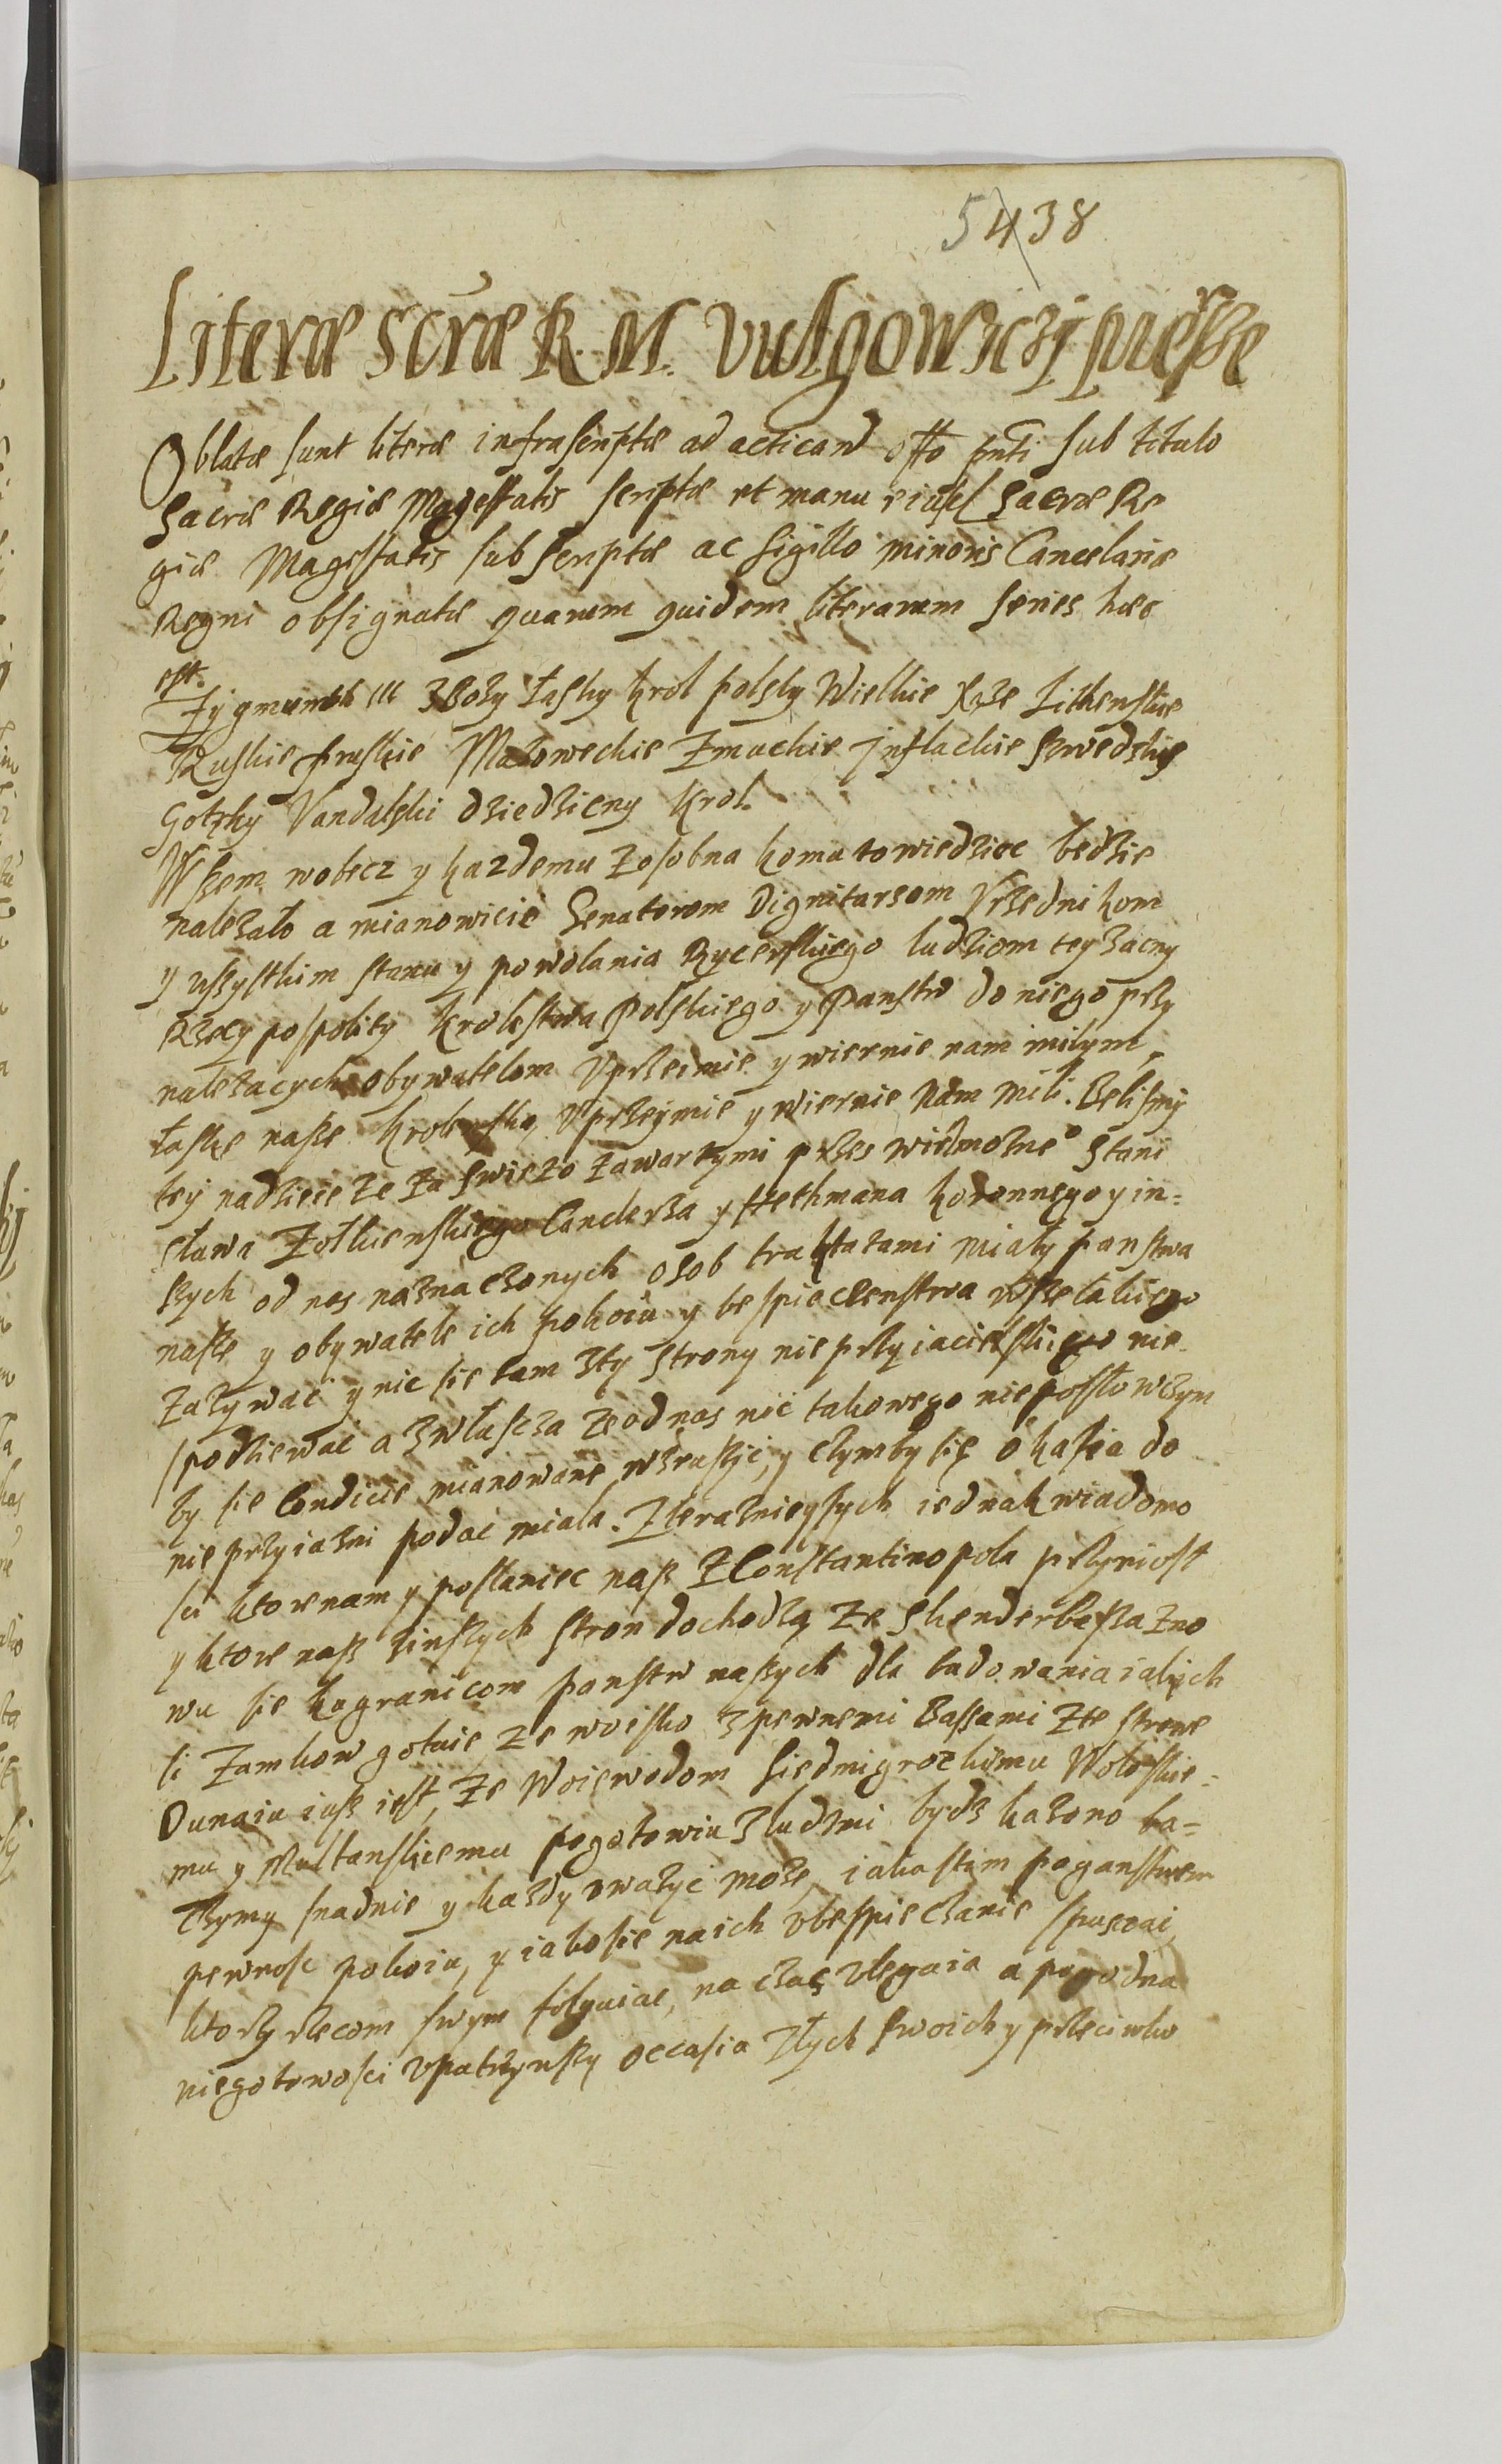 5438
Literæ Scræ R. M. vulgo wiczi pierße
Oblatæ sunt literæ infrascriptæ ad acticand offo pnti sub titulo
Sacræ Regiæ Magestatis scriptæ et manu eiusd Sacræ Re
giæ Magestatis subscriptæ ac sigillo minoris Cancelariæ
Regni obsignatæ quarum quidem literarum series hæc
est.
Zÿgmunth III z Bozy łasky krol polsky Wielkie Xże Lithewskie
Ruskie pruskie Mazoweckie Zmuckie Inflackie Szwedzky
Gotzky Vandalski dziedziczny krol.
Wszem wobecz y kazdemu zosobna komu to wiedziec będzie
nalezało a mianowicie Senatorom Dignitarzom Vrzednikom
y wszystkim stanu y powolania Rycerskiego ludziom tey zacny
Rzeczypospolity krolestwa Polskiego y Panstw do niego przy
należacych obywatelom Vprzeimie y wiernie nam milym,
łaskę naße krolewską, Vprzeÿmie y Wiernie Nam mili. Belismÿ
teÿ nadzieie że za swiezo zawartymi przes wielmożne° Stani
sława Zołkiewskiego Canclerza y Hethmana koronnego y in=
ßych od nas naznaczonych osob traktatami miały panstwa
naße y obywatele ich pokoiu y bespieczenstwa wßelakiego
zazywać y nic sie tam zty strony nieprzyiacielskiego nie
spodziewać a zwłascza że od nas nic takowego nie posło wczym
by sie Condicie mianowane wzrußÿć, y czymby się okasia do
nieprzyiazni podać miala. Z terazniejszych iednak wiadomo
sci ktore nam y poslaniec naß z Constantinopola przyniosł
y ktore naß zinßych stron dochodzą, że Skenderbaßa zno
wu sie ku granicom panstw naßych dla budowania iakich
si zamkow gotuie, że woisko z pewnemi Baßami z te strone
Dunaiu iuß iest, że Woiewodom Siedmigroczkiemu Wołoskie=
mu y Multanskiemu pogotowiu z ludzmi bydz kazono ba=
czymy snadnie y kazdy vważyć może, iaka s tim poganstwem
pewnosc pokoiu, y iako sie na ich vbespieczanie spusczai,
ktorzy rzecom swym folguiac, na czas vlegaia a pogodna
niegotowosci vpatrzywßy occasia złych swoich y przeciwko